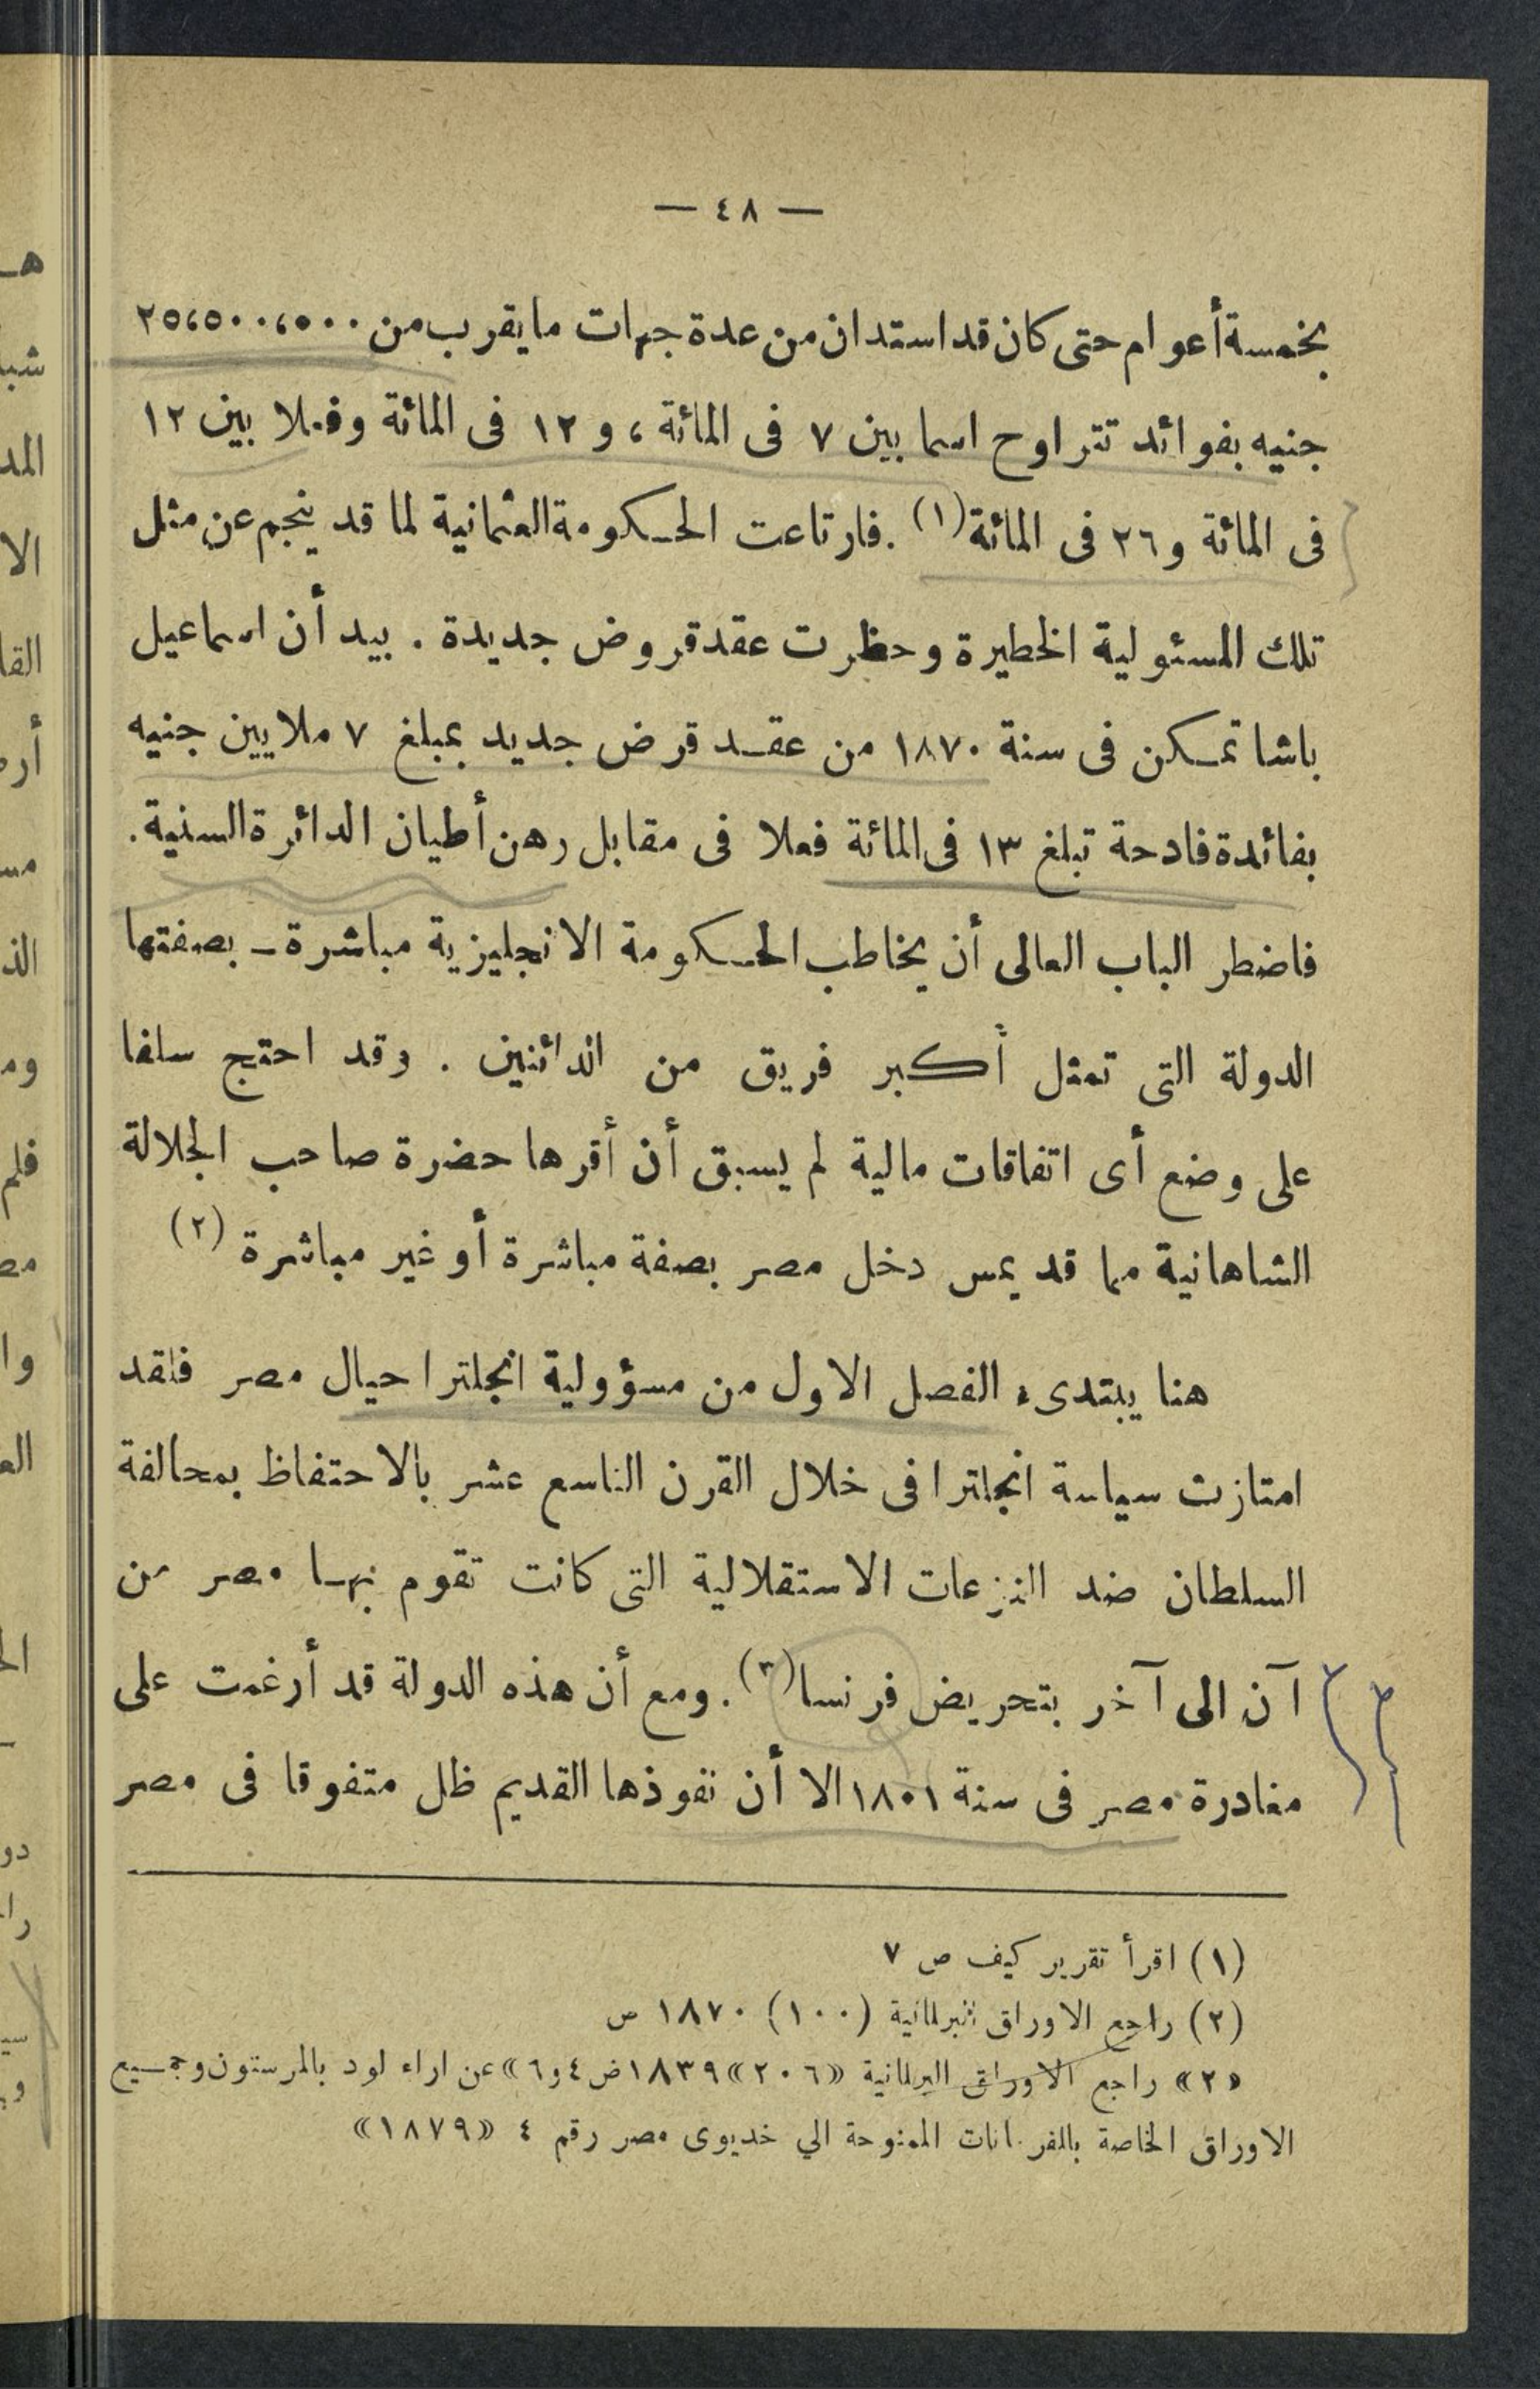 — ٤٨ —
بخمسة أعوام حتى كان قد استدان من عدة جهات ما يقرب من ٢٥،٥٠٠،٥٠٠
جنيه بفوائد تتراوح اسما بين ٧ فى المائة ، و ١٢ فى المائة وفعلا بين ١٢
فى المائة و ٢٦ فى المائة (١) . فارتاعت الحكومة العثمانية لما قد ينجم عن مثل
تلك المسئولية الخطيرة وحظرت عقد قروض جديدة . بيد أن اسماعيل
باشا تمكن فى سنة ١٨٧٠ من عقد قرض جديد بمبلغ ٧ ملايين جنيه
بفائدة فادحة تبلغ ١٣ فى المائة فعلا فى مقابل رهن أطيان الدائرة السنية .
فاضطر الباب العالى أن يخاطب الحكومة الانجليزية مباشرة – بصفتها
الدولة التى تمثل أكبر فريق من الدائنين . وقد احتج سلفا
على وضع أى اتفاقات مالية لم يسبق أن أقرها حضرة صاحب الجلالة
الشاهانية مما قد يمس دخل مصر بصفة مباشرة أو غير مباشرة (٢)
هنا يبتدىء الفصل الاول من مسؤولية انجلترا حيال مصر فلقد
امتازت سياسة انجلترا فى خلال القرن التاسع عشر بالاحتفاظ بمحالفة
السلطان ضد النزعات الاستقلالية التى كانت تقوم بها مصر من
آن الى آخر بتحريض فرنسا (٣) . ومع أن هذه الدولة قد أرغمت على
مغادرة مصر فى سنة ١٨٠١ الا أن نفوذها القديم ظل متفوقا فى مصر
(١) اقرأ تقرير كيف ص ٧
(٢) راجع الاوراق البرلمانية (١٠٠) ١٨٧٠ ص
«٢» راجع الاوراق البرلمانية «٢٠٦» ١٨٣٩ ض ٤ و٦» عن اراء لود بالمرستون وجميع
الاوراق الخاصة بالفرمانات الممنوحة الي خديوى مصر رقم ٤ «١٨٧٩»